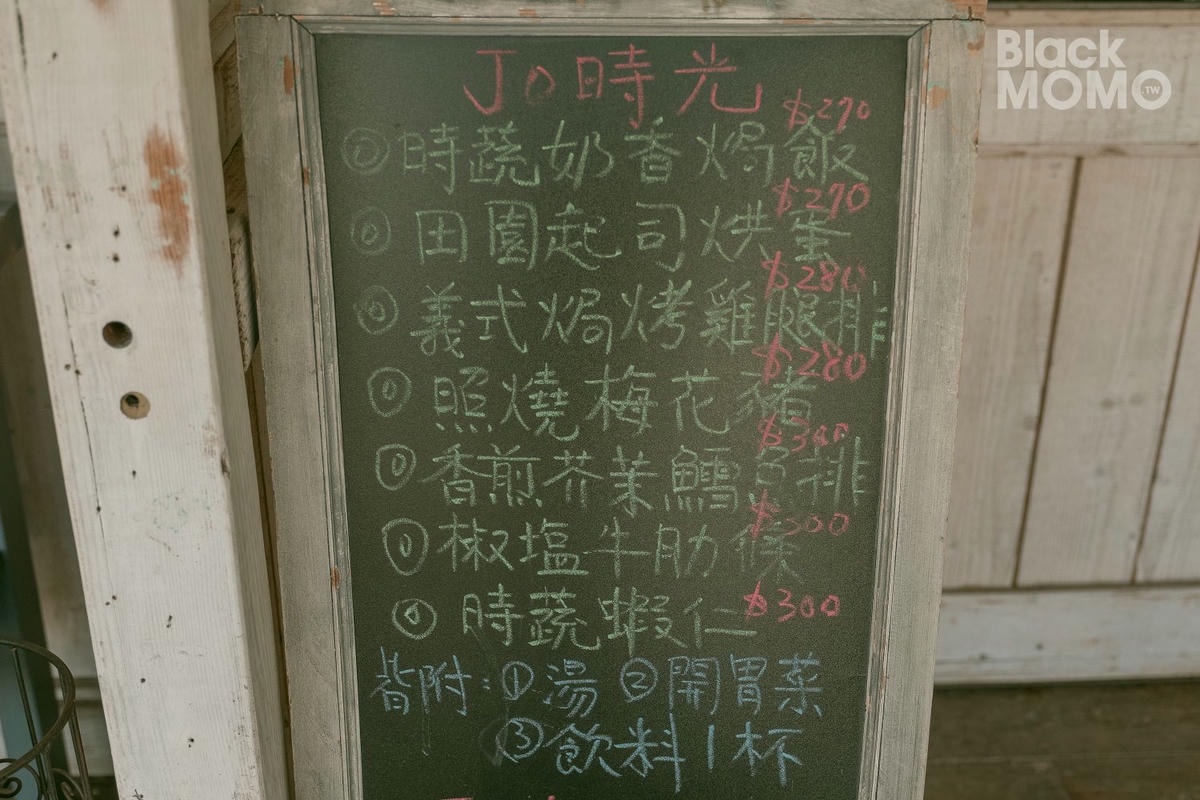 Jo時光
時蔬奶香焗飯 $270
田園起司烘蛋 $270
義式焗烤雞腿排 $280
照燒梅花豬 $280
香煎芥茉鱈魚排 $300
椒塩牛肋條 $300
時蔬蝦仁 $300
皆附:①湯 ②開胃菜
③飲料1杯
Black
MOMO.TW